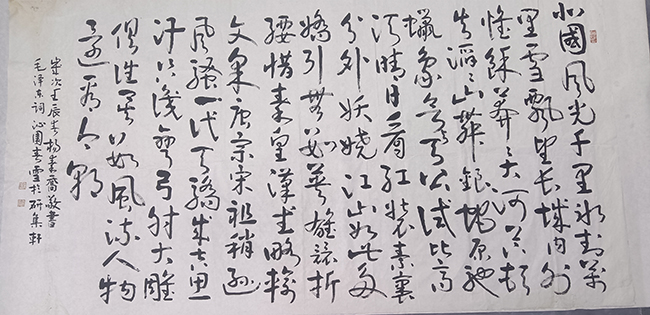 北國風光千里冰封萬
里雪飄望长城内外
惟餘莽々大河上下頓
失滔々山舞銀蛇原馳
蠟象欲与天公试比高
须晴日看红装素裹
分外妖娆江山如此多
嬌引無數英雄競折
腰惜秦皇漢武略輸
文采唐宗宋祖稍遜
風騷一代天驕成吉思
汗只识彎弓射大雕
俱往矣數風流人物
還看今朝
歲次壬辰春楊素喬敬書
毛泽东词沁園春雪於研集軒